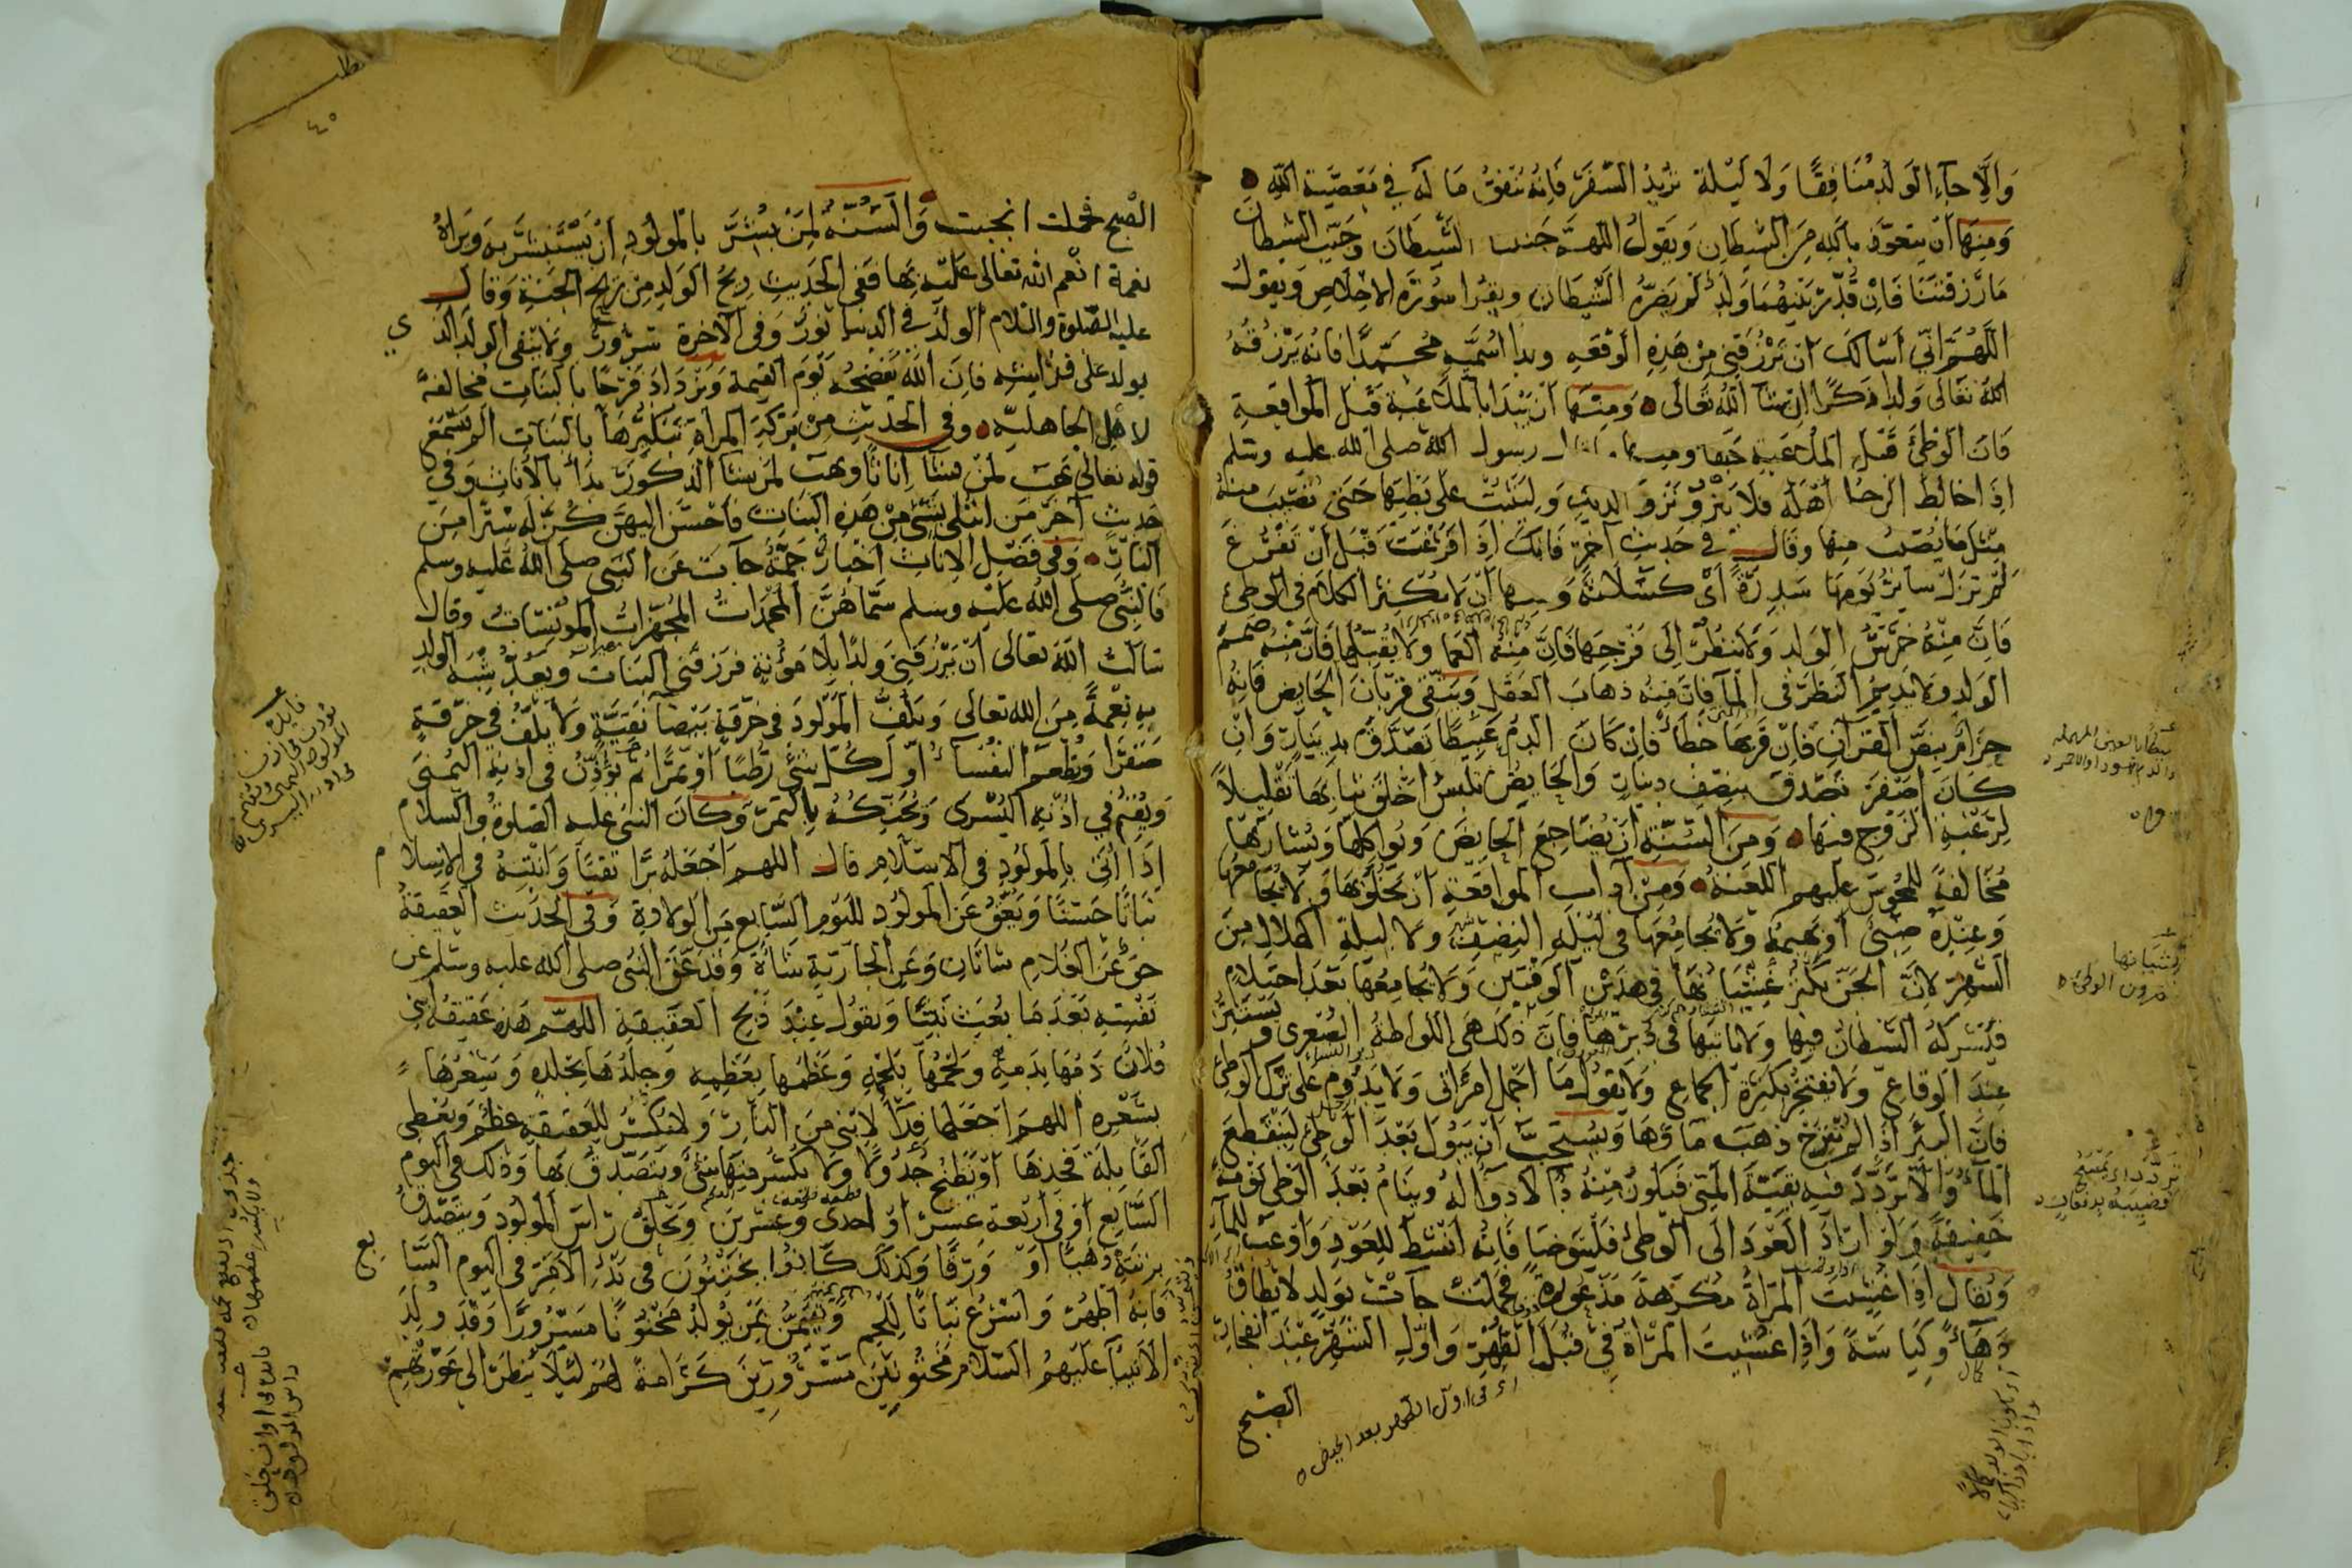 وَاِلَّا جآءَ الوَلَدُ مُنَافِقًا وَلَا لَيْلَة يُرِيْدُ السَّفَرَ فَاِنَّهُ يُنْفِقُ مَا لَهُ فِي مَعْصِيَةِ اللّٰهِ
وَمِنهَا اَنْ يتعوّذ باللّٰهِ مِنَ الشيطَانِ وَيَقولُ اللهمَّ جَنبنا الشَّيطَانَ وَجَنِّبِ الشيطانَ
مَا رَزقتَنَا فَاِنْ قُدِّرَ بَيْنَهُمَا وَلَدٌ لَمْ يَضُرَّهُ الشَّيْطَان ويقرا سُورَةَ الاخلاصِ وَيقولُ
اللَّهُمَّ اِنّي اَسْالكَ اَنْ تَرْزُقَنِي مِنْ هَذِهِ الوَقْعَةِ ولدا اُسَمّيهِ مُحَمَّدًا فانهُ يَرْزُقُهُ
اللهُ تعَالَى وَلدًا ذكرًا اِنْ شَآ اللّٰهُ تَعَالَى وَمِنْهَا اَنْ يَبْدَا بِالمُلَاعَبَةِ قَبْلَ المُوَاقَعَةِ
فَاِنَّ الوَطْيَ قَبْلَ المُلاعَبَةِ جَفا رسول اللهِ صلى الله عليه وسلم
اِذَا خالَطَ الرجُل اَهْلَهُ فَلَا يَنْزُو نَزْوَ الديكِ وَليَثْبُتْ عَلَى بَطْنِهَا حَتَى تُصِيْبَ مِنهُ
مِثْلَ مَا يُصيْبُ مِنها وقَالَ فِي حَدِيثٍ آخَرَ فَاِنَّكَ اِذَا فَرَغْتَ قَبْلَ اَنْ تَفْرُغَ
لَمْ تَزلْ سَائِرَ يَوْمِهَا سَدِرَةً اَيْ كسْلَانَةً وَمنها اَنْ لَا يُكْثِرَ الكلَامَ فِي الوَطْئِ
فَاِنَّ مِنْهُ خَرَسُ الوَلدِ وَلَا يَنظُرْ اِلَى فَرْجِهَا فَاِنَّ مِنْهُ العَمَا وَلَا يُقَبِّلْهَا فَاِنَّ مِنْهُ صَمَمُ
الوَلدِ وَلا يُدِيْمُ النَظَرَ فِي المآ فاِنَّ مِنهُ ذهَابَ العَقلِ وَيَتَّقِي قِرْبَانَ الحَايضِ فَاِنَّهُ
حَرَامٌ بِنَصِّ القُرآنِ فَاِنْ قَرِبَهَا خطَاءً فَاِنْ كَانَ الدَمُ عَبِيطًا تَصَدَّقَ بِدِينَارٍ وَاِنْ
كَانَ اَصْفَرَ تَصَدَّقَ بِنِصْفِ دِينَارٍ وَالحَايِضُ تَلْبَسُ اَخْلَقَ ثِيَابِهَا تَقْلِيلًا
لِرَغْبَةِ الزَوْجِ فيهَا وَمِنَ السُّنَّةِ اَنْ يُضَاجِعَ الحَايِضَ وَيُوَاكِلَهَا وَيُشَارِبَهَا
مُخَالَفَةً لِلمَجُوسِ عَلَيهِمِ اللعْنَةُ وَمِنْ آداب المُوَاقَعَةِ اَنْ يَخْلُوَ بِهَا وَلَا يُجَامِعْهَا
وَعِنْدَهُ صَبِيٌّ اَوْ بَهِيمَةٌ وَلَا يُجَامِعُهَا فِي لَيْلَةِ النِصْفِ وَلَا لَيلَةَ الهلال مِنَ
الشَّهْرِ لاَنَّ الجنَّ يَكْثُرُ غِشْيَانُهَا فِي هَذَيْنِ الوَقْتَيْنِ وَلَا يُجَامِعُهَا بَعْدَ احتِلَامٍ
فَيَشْركُهُ الشيْطَانُ فِيهَا وَلَا يَاتِيهَا فِي دُبُرِهَا فَاِنَّ ذَلكَ هِيَ اللوَاطَةُ الصُغرَى وَيَسْتَتِرُ
عِندَ الوِقَاعِ وَلَا يَفْتَخِرُ بِكَثْرَةِ الجِمَاعِ وَلَا يَقولُ مَا اَجْمَلَ امْرَاَتِي وَلَا يَدُوْمُ عَلَى تَرْكِ الوَطْيِ
فَاِنَّ البِئْرَ اِذَا لَمْ تُنْزَحْ ذَهَبَ مَاؤُهَا وَيُسْتَحَبُّ اَنْ يَبُوْلَ بَعْدَ الوَطْئِ لِيَنْقَطِعَ
المآءُ وَاِلَّا تَرَدَّدَ فِيهِ بَقِيَّةُ المَنِيِّ فَيَكُونُ مِنْهُ دَآ لَا دَوَآ لَهُ وَيَنَامُ بَعْدَ الوَطْيِ نَوْمَةً
خَفِيفَةً وَلَوْ اَرَادَ العَوْدَ اِلَى الوَطْئِ فَلْيَتَوَضَا فَاِنَّهُ اَنْشَطُ لِلعَوْدِ وَاَوْعَبُ لِلمآءِ
وَيُقَالُ اِذَا غُشِيَت المَرْاَةُ مُكْرَهَةً مَذْعُورَةً فَحَمَلَتْ جآتْ بِوَلَدٍ لَا يُطَاقُ
دَهآءً وَكِيَاسَةً وَاِذَا غُشِيَتِ المَرْاَةُ فِي قُبُلِ الطُهْرِ وَاَوَّلِ الشَهْرِ عِنْدَ انفِجَارِ
الصُّبحِ
اى فى اول الطهر بعد الحيض
الصُّبحِ فَحَملت انجَبَت وَالسُّنَّةُ لِمَنْ بُشِّرَ بالمَولُودِ اَنْ يَسْتَبْشِرَ بِهِ وَيَرَاهُ
نعمَةً انْعَم اللهُ تعَالى عَلَيْهِ بهَا فَفِي الحَدِيثِ رِيحُ الوَلَدِ مِنْ رِيْحِ الجَنَّةِ وَقَالَ
عليه الصَّلوةُ والسّلام الوَلَدُ فِي الدنيَا نُورٌ وَفِي الآخِرَةِ سُرُورٌ وَلَا يَنْفِي الوَلَدَ الذي
يولد على فرَاشِهِ فاِنَّ اللّٰهَ يَفْضَحُهُ يَوْمَ القِيمَةِ وَيَزْدَادُ فَرَحًا بِالبَنَاتِ مُخَالَفَةً
لاَهْلِ الجَاهليّةِ وَفِي الحَدِيثِ مِنْ بَرَكَةِ المَرْاَةِ تَبْكِيرُهَا بِالبَنَاتِ اَلَمْ تَسْمَعْ
قوله تعَالَى يَهَبُ لِمَنْ يَشَآ اِنَاثًا وَيَهَبُ لِمَنْ يَشَآ الذُكُورَ بَدَاَ بالانَاثِ وَفِي
حَدِيثٍ آخَرَ مَنِ ابْتُلِيَ بِشَيْءٍ مِنْ هَذِهِ البَنَاتِ فَاَحْسَنَ اِلَيْهِنَّ كُنَّ لَهُ سِتْرًا مِنَ
النَّارِ وَفِي فَضْلِ الاِنَاثِ اَخْبَارٌ جَمَّةٌ جآت عَنِ النَّبِي صَلَى اللهُ عَلَيهِ وَسَلم
فَالنَبِيُّ صَلَى اللهُ عَلَيْهِ وسلم سَمَّاهُنَّ المُجَهّزَاتُ المُوْنِسَاتُ وَقَالَ
سَالتُ اللّٰهَ تعَالَى اَنْ يَرْزُقَنِي وَلدًا بِلَا مَؤُنَةٍ فَرَزَقَنِي البَنَاتِ وَيَعُدُّ شِبْهَ الوَلَدِ
بِهِ نِعْمَةً مِنَ الله تعَالى وَيَلُفُّ المَوْلُودَ فِي خِرْقَةٍ بَيْضَآ نَقِيَّةٍ وَلَا يَلُفُّ فِي خِرْقَةٍ
صَفْرَا وَتُطْعَمُ النُفَسَآءُ اَوَّلَ كُلّ شَيْءٍ رُطَبًا اَوْ تَمْرًا ثُمَّ يُؤَذِّنُ فِي اُذنِهِ اليُمْنَى
وَيُقِيْمُ فِي اُذُنِهِ اليُسْرَى وَيُحَنِّكُهُ بِالتَمْرِ وَكَانَ النَبِيُّ عَليهِ الصَلوةُ وَالسَّلَامُ
اِذَا اُتِيَ بِالمَولُودِ فِي الاِسْلَامِ قَالَ اللهمَ اجْعَلْهُ بَرًّا تقِيًّا وَاَنْبِتْهُ فِي الاِسْلَامِ
نَبَاتًا حَسَنًا وَيَعُقُّ عَنِ المَوْلُودِ لليَوْمِ السَّابِعِ مِنَ الوِلَادَةِ وَفِي الحَدِيثِ العَقِيْقَةُ
حَقٌّ عَنِ الغُلَامِ شَاتَانِ وَعَنِ الجَارِيَةِ شَاةٌ وَقَدْ عَقَّ النَبِي صلى الله عليه وسلم عن
نَفْسِهِ بَعْدَ مَا بُعِثَ نَبِيًّا وَيَقُولُ عِنْدَ ذَبْحِ العَقِيقَةِ اللهُمَّ هَذِهِ عَقِيْقَةُ ابْنِي
فُلَانٍ دَمُهَا بِدَمِهِ وَلَحْمُهَا بِلَحْمِهِ وَعَظْمُهَا بِعَظْمِهِ وَجِلْدُهَا بِجِلْدِهِ وَشَعْرُهَا
بِشَعْرِهِ اللهمَّ اجْعَلهَا فِدَآً لِابْنِي مِنَ النَّارِ وَلَا يُكْسَرُ لِلعَقِيقَةِ عَظْمٌ وَيُعْطِي
القَابِلَةَ فَخِذَهَا اَوْ يَطْبُخُ جُدُولًا وَلَا يَكْسُرُ مِنْهَا شَيْءٌ وَيَتَصَدَّقُ بِهَا وَذَلكَ فِي اليَوْمِ
السَّابِعِ اَوْ فِي اَرْبَعَةَ عَشَرَ اَوْ اِحدَى وَعِشْرِيْنَ وَيَحْلِقُ رَاسَ المَوْلُودِ وَيَتَصَدَّقُ
بِزِنَتِهِ ذَهَبًا اَوْ وَرِقًا وَكذَلكَ كَانُوا يَخْتِنُونَ فِي بَدْءِ الاَمْرِ فِي اليَومِ السَّابع
فَاِنَّهُ اَطْهَرُ وَاَسْرَعُ نَبَاتًا لِلَّحْمِ وَيَتَيَمَّنُ بِمَنْ يُوْلَدُ مَخْتُونًا مَسْرُورًا وَقَدْ وُلِدَ
الاَنبِيَآ عَلَيْهِمُ السَّلَام مَخْتُونِيْنَ مَسْرُورِيْنَ كَرَامَةً لَهُمْ لِئَلَّا يُنْظَرَ اِلَى عَوْرَتِهِمْ